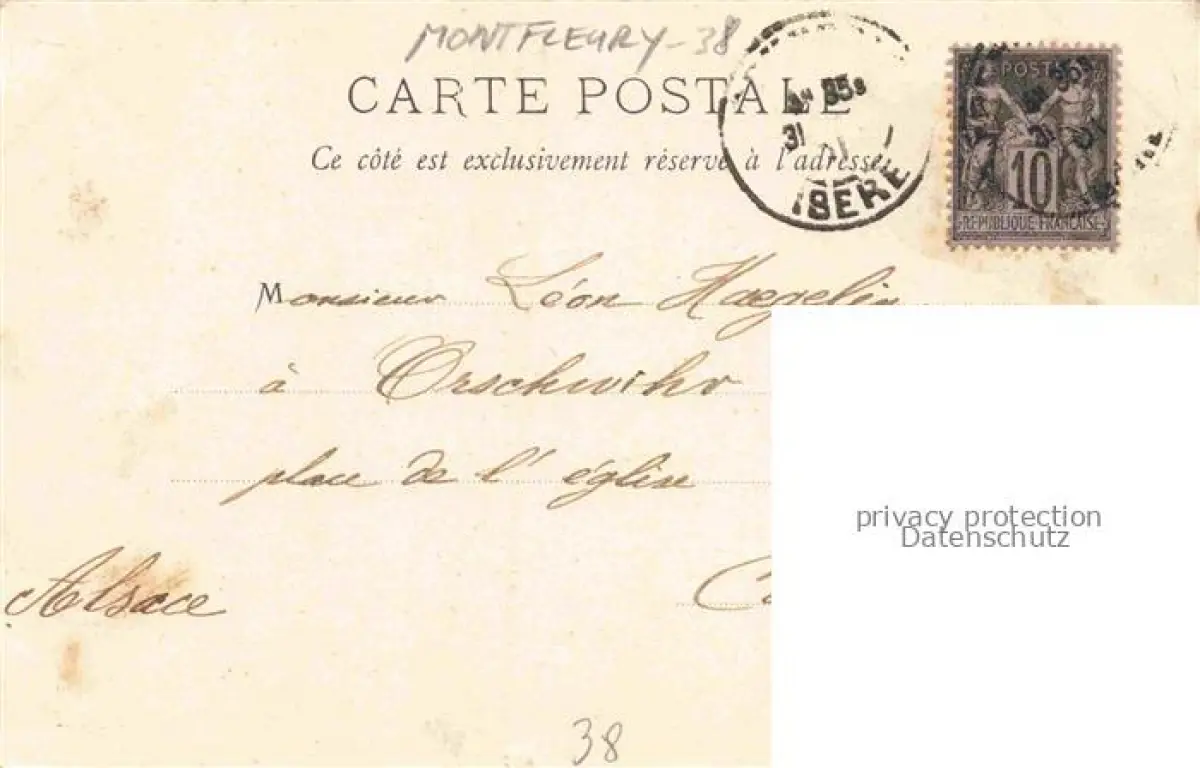 MONTFLEURY-38
CARTE POSTALE
Ce côté est exclusivement réservé à l'adresse
31
ISERE
POSTES
10
REPUBLIQUE FRANÇAISE
Monsieur Léon Haegelin
à Orschwihr
place de l'église
Alsace
privacy protection
Datenschutz
38